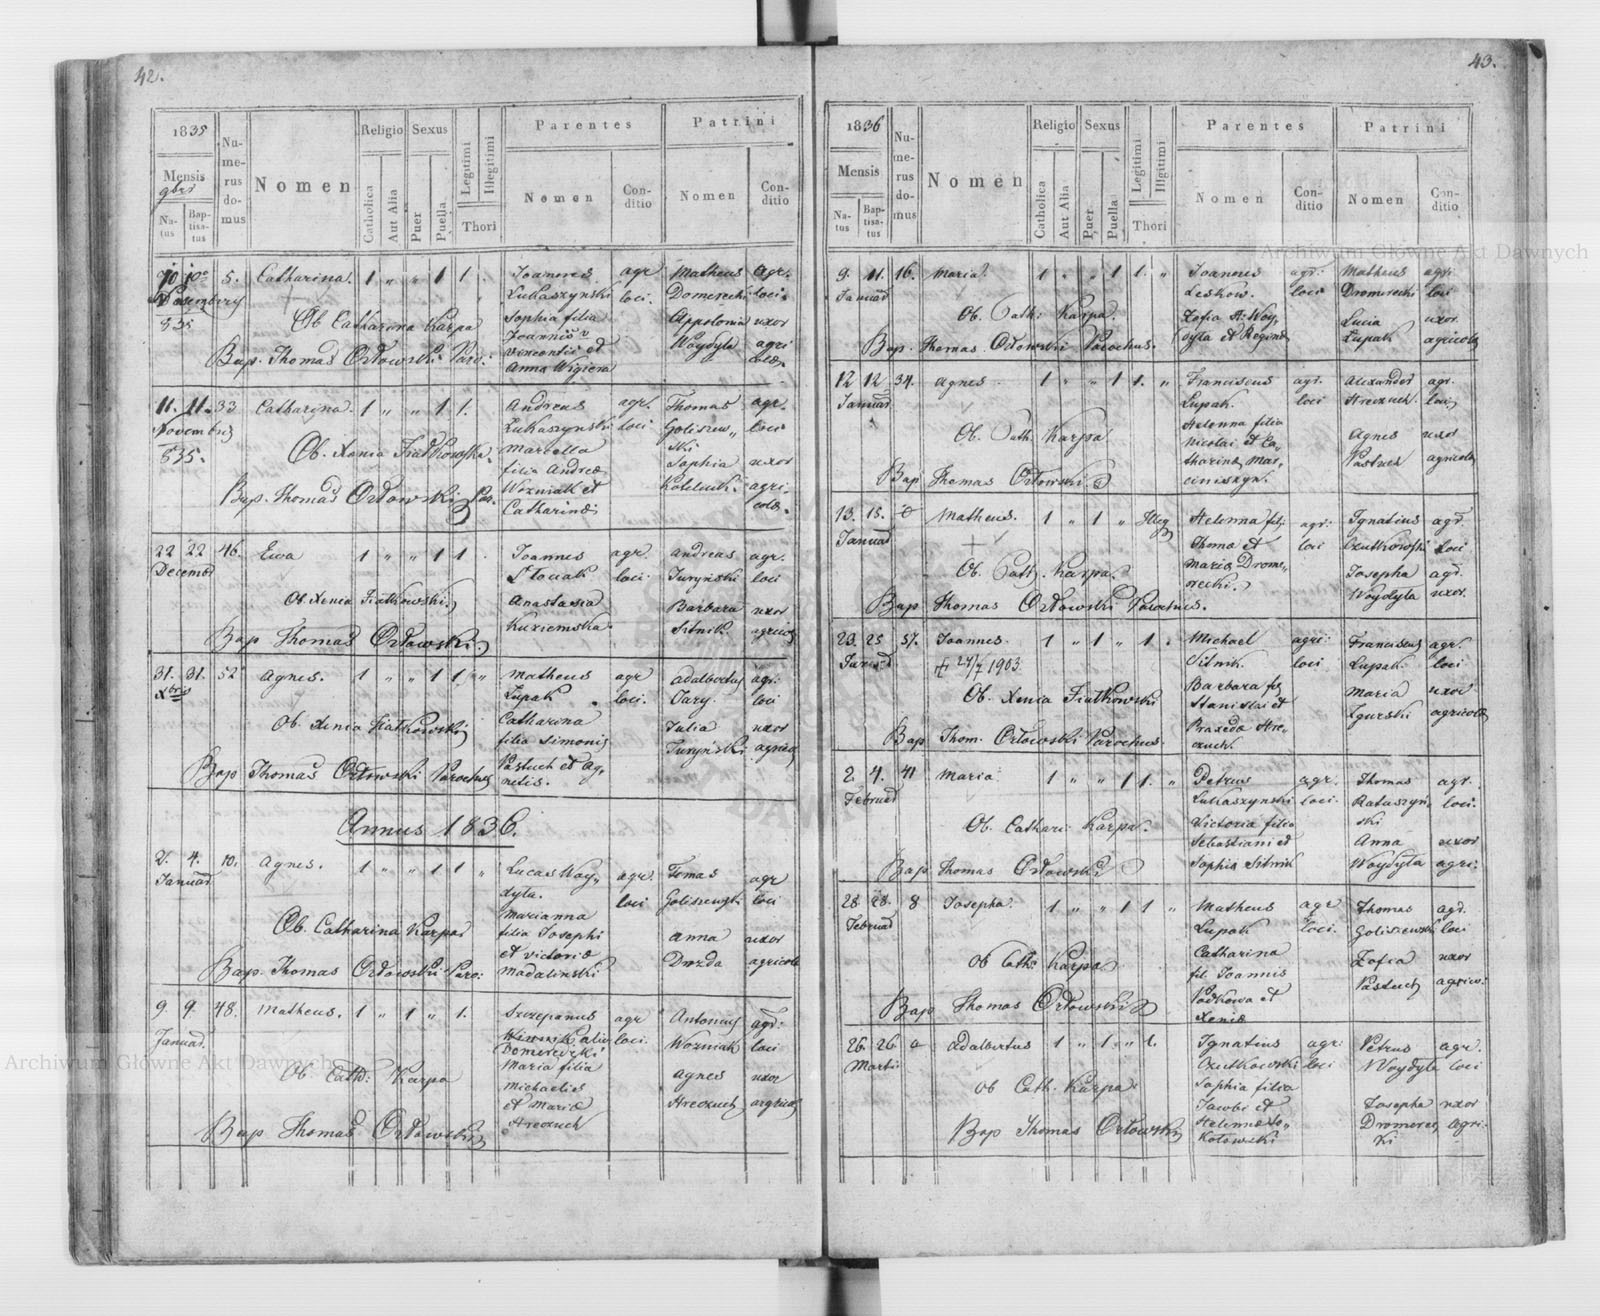 42.
1835
Mensis
9bris
Natus
Baptisatus
Numerus domus
Nomen
Religio
Catholica
Aut Alia
Sexus
Puer
Puella
Legitimi
Illegitimi
Thori
Parentes
Nomen
Conditio
Patrini
Nomen
Conditio
10 10 5. Catharina. 1 " " 1 1. Joannes agr Matheus agr.
Lukaszynski loci. Domerecki loci
835 Ob Catharina Karpa Sophia filia Appolonia uxor
Joannis Woydyla agri
Bap. Thomas Orłowski Paro: Vincentii et colae
Anna Wigiera
11. 11. 33 Catharina. 1 " " 1 1. Andreas agr. Thomas agr.
Novembris Lukaszynski loci Goliszew„ loci
835. Ob. Xenia Fiadkowska. Marcella ski
filia Andreae Sophia uxor
Bap. Thomas Orłowski Par. Wozniak et agri„
Catharinae colae.
22 22 46. Ewa 1 " " 1 1 Joannes agr Andreas agr.
Decembr loci. Turyński loci
Ob. Xenia Fiatkowski. Anastasia Barbara uxor
Kuziemska. Sitnik agricolae
Bap Thomas Orłowski.
31. 31. 52 Agnes. 1 " " 1 1 " Matheus agr Adalbertus agr.
Xbris Łupak loci. Jary. loci
Ob Xenia Fiatkowski Catharina Julia uxor
filia Simonis Turyński agricol
Bap Thomas Orłowski Parochus Pastuch et Ag„
netis.
Annus 1836.
2. 4. 10. Agnes. 1 " " 1 1 " Lucas Woy„ agr. Tomas agr
Januar dyla. loci Goliszewski loci
Marianna
Ob. Catharina Karpa filia Josephi Anna uxor
et Victoriae Duzda agricolae
Bap. Thomas Orłowski Paro: Madalinski
9. 9. 48. Matheus. 1 " 1 " 1. Szczepanus agr Antonius agr.
Januar. loci. Wozniak loci
Domerecki
Ob Cath: Karpa Maria filia Agnes uxor
Michaelis Hreczuch agricol
et Mariae
Bap Thomas Orłowski Hreczuch
43.
1836
Mensis
Natus
Baptisatus
Numerus domus
Nomen
Religio
Catholica
Aut Alia
Sexus
Puer
Puella
Legitimi
Illgitimi
Thori
Parentes
Nomen
Conditio
Patrini
Nomen
Conditio
9. 11. 16. Maria. 1 " " 1 1. " Joannes agr: Matheus agri
Januar Leskow. loci Dromerecki loci
Ob. Cath: Karpa. Zofia A: Woy„ Lucia uxor
Bap. Thomas Orłowski Parochus. dyla et Regina Łupak agricolae
12 12 34. Agnes 1 " " 1 1. " Franciscus agr. Alexander agr.
Januar Łupak. loci Hreczuch. loci
Ob. Cath. Karpa Helenna filia Agnes uxor
Nicolai et Ca„ Pastuch agricolae
Bap Thomas Orłowski tharinae Mar„
ciniszyn.
13. 15. Matheus. 1 " 1 " Illeg Helenna fil: agr: Ignatius agr.
Januar Thomae et loci Czutkowski loci
Ob. Cath. Karpa. Mariae Drome„ Josepha agr.
recki. Woydyla uxor.
Bap Thomas Orłowski Parochus.
23. 25 57. Joannes. 1 " 1 " 1. Michael agri: Franciscus agr.
Januar ✝ 24/7 1903 Sitnik. loci Łupak. loci
Ob. Xenia Fiatkowski Barbara fil Maria uxor
Stanislai et Zgurski agricolae
Bap Thom. Orłowski Parochus. Praxedae Hre„
czuch.
2. 4. 41 Maria 1 " " 1 1. " Petrus agr. Thomas agr.
Februar Lukaszynski loci. Rataszyn„ loci.
Ob. Cathari: Karpa. Victoria filia ski
Sebastiani et Anna uxor
Bap Thomas Orłowski Sophia Sitnik Woydyla agri:
28. 28. 8 Josepha. 1 " " 1 1 " Matheus agr Thomas agr.
Februar Łupak loci. Goliszewski loci
Ob Cath: Karpa Catharina Zofia uxor
fil. Joannis Pastuch agrico.
Bap Thomas Orłowski Podkowa et
Xeniae
26. 26. Adalbertus 1 " 1 " 1. Ignatius agr: Petrus agr.
Marti: Czutkowski loci Woydyla loci
Ob Cath. Karpa. Sophia filia
Jacobi et Josepha uxor
Bap Thomas Orłowski Helennae So„ Dromerec„ agri:
Kołowski ki
Archiwum Główne Akt Dawnych
Archiwum Główne Akt Dawnych